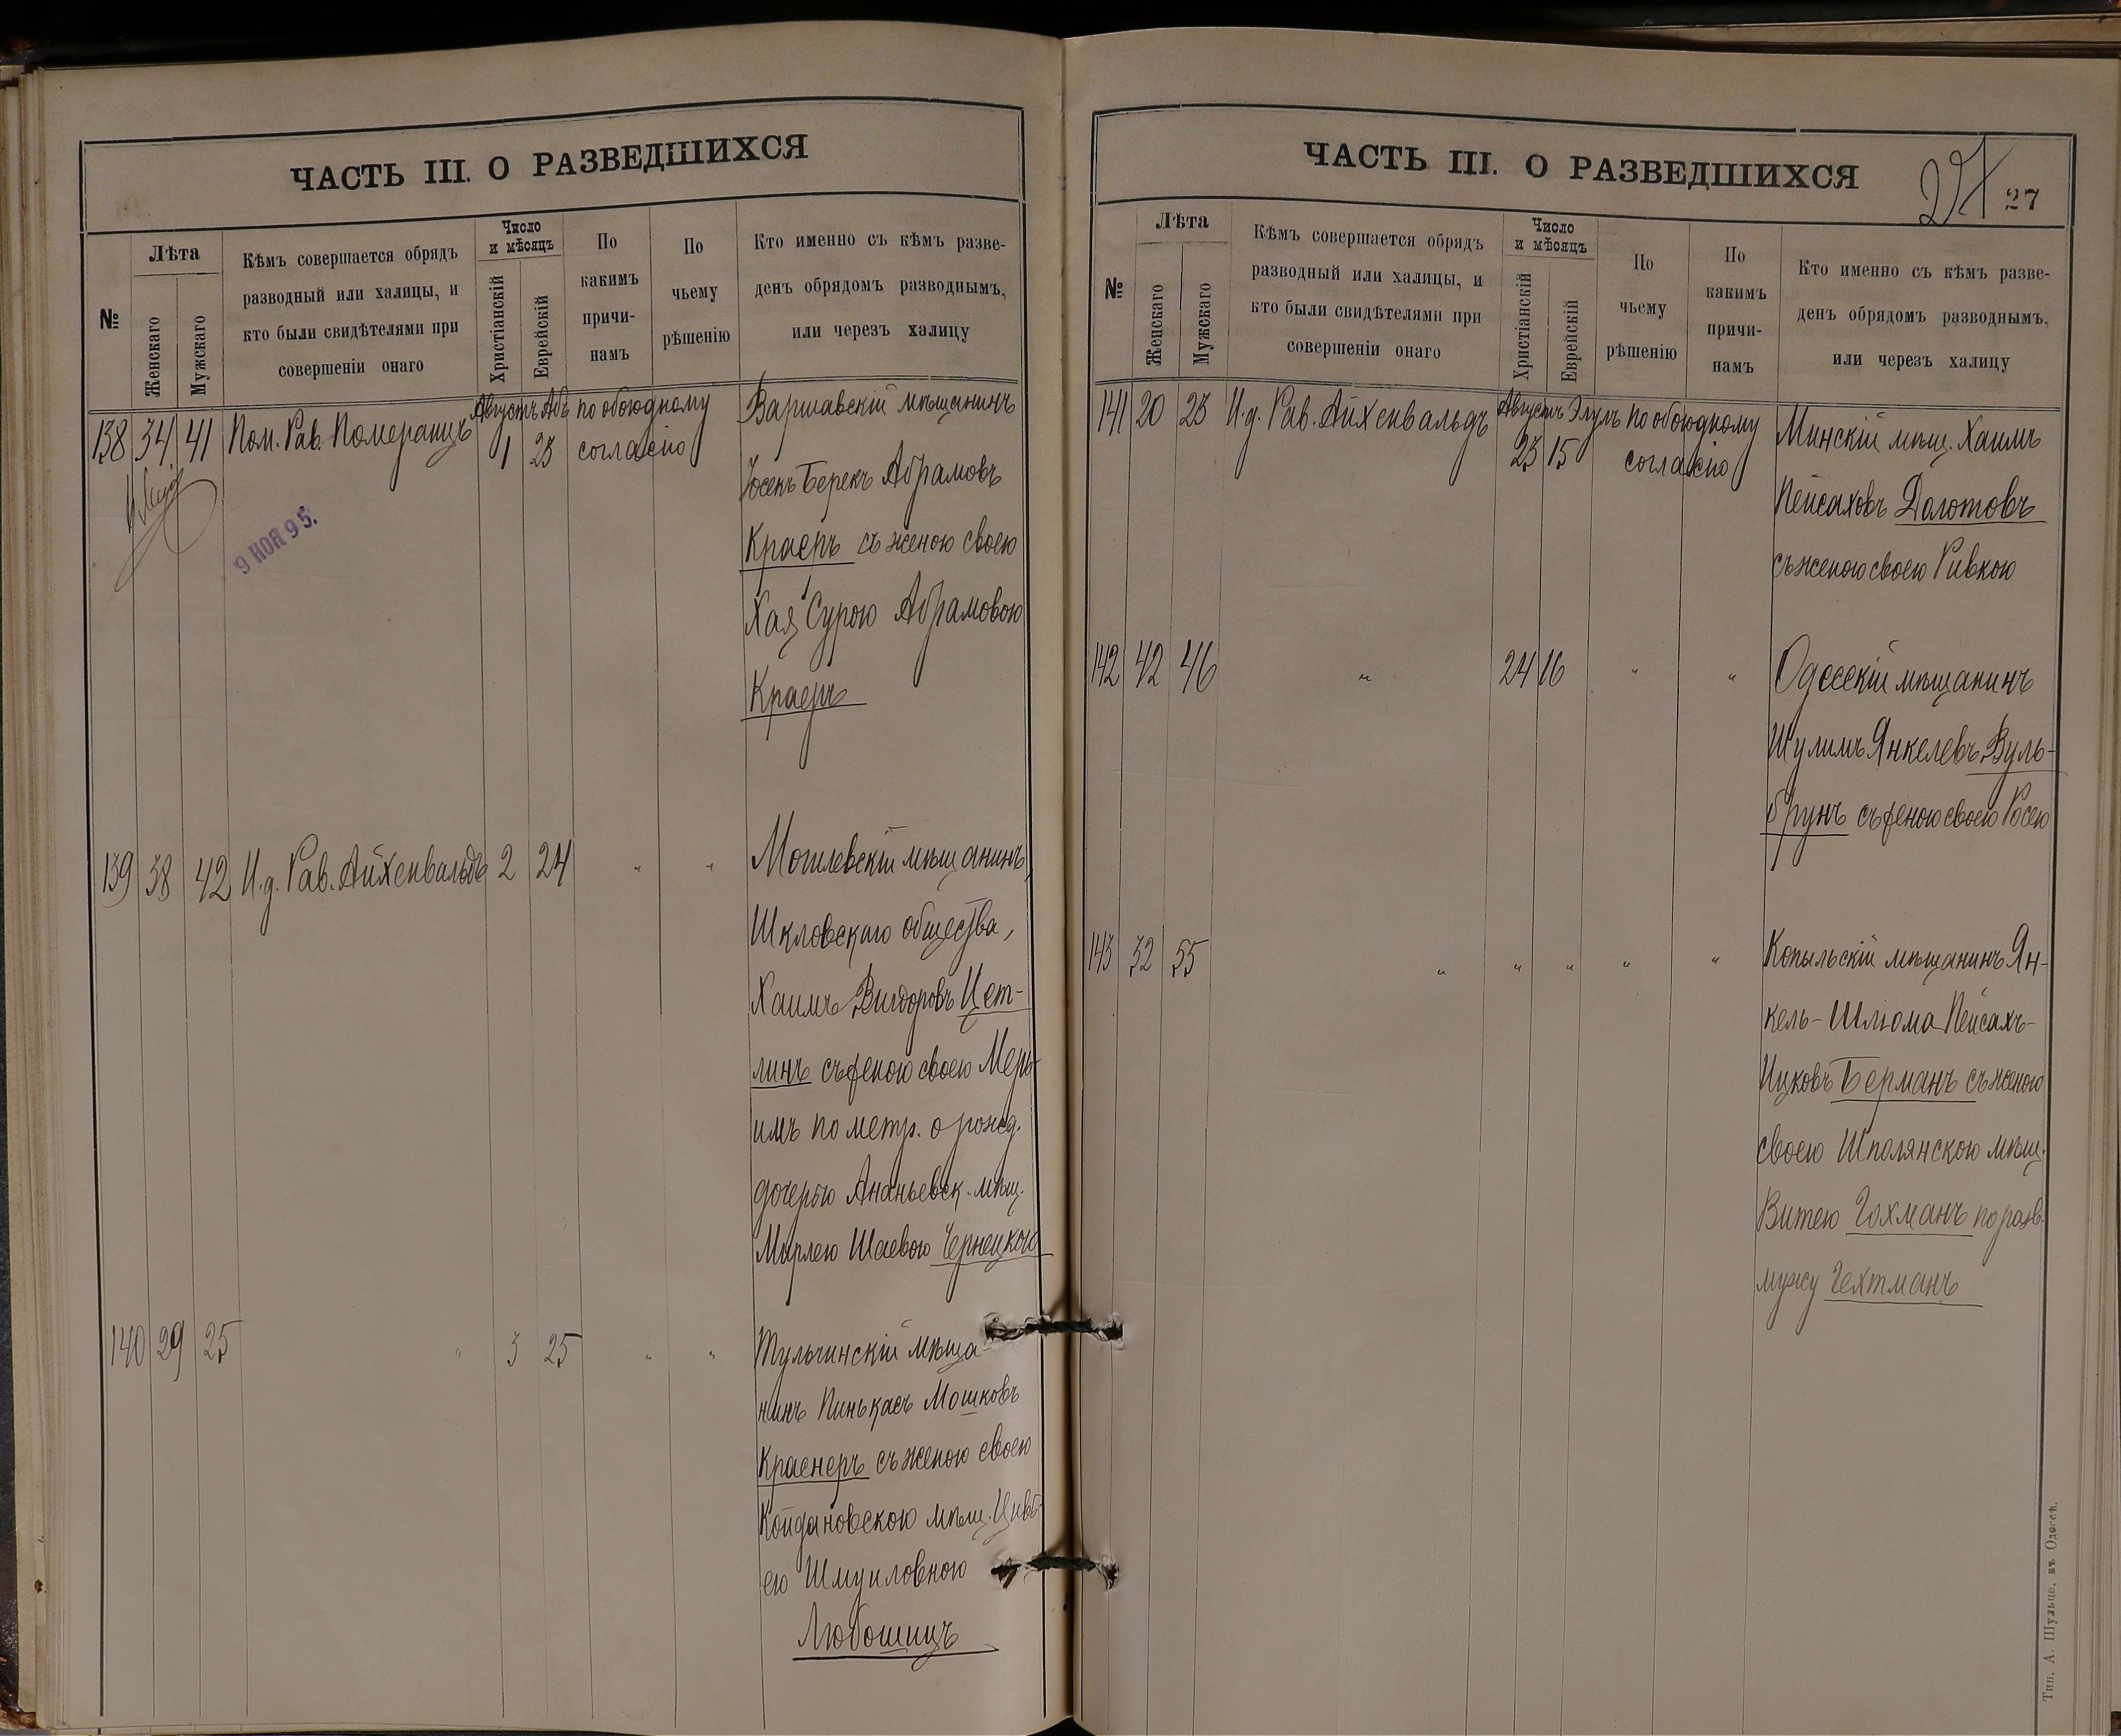 ЧАСТЬ III. О РАЗВЕДШИХСЯ
№
Лѣта
Женскаго
Мужскаго
Кѣмъ совершается обрядъ
разводный или халицы, и
кто были свидѣтелями при
совершеніи онаго
Число
и мѣсяцъ
Христіанскій
Еврейскій
По
какимъ
причи-
намъ
По
чьему
рѣшенію
Кто именно съ кѣмъ разве-
денъ обрядомъ разводнымъ,
или черезъ халицу
138 34 41 Пом. Рав. Померанцъ Августъ 1 Абъ 23 по обоюдному
согласію
Варшавскій мѣщанинъ
Іосекъ Берекъ Абрамовъ
Краеръ съ женою своею
Хая Сурою Абрамовою
Краеръ
9 НОЯ 95.
139 38 42 И.д. Рав. Айхенвальдъ 2 24 " "
Могилевскій мѣщанинъ,
Шкловскаго общества,
Хаимъ Вигдоровъ Цет-
линъ съ женою своею Мерь-
имъ по метр. о рожд.
дочерью Ананьевск. мѣщ.
Мирлею Шаевою Чернецкого
140 29 25 " 3 25 " "
Тульчинскій мѣща-
нинъ Пинькасъ Мошковъ
Краснеръ съ женою своею
Койдановскою мѣщ. Цивь-
ею Шмуиловною
Любошицъ
ЧАСТЬ III. О РАЗВЕДШИХСЯ
27
№
Лѣта
Женскаго
Мужскаго
Кѣмъ совершается обрядъ
разводный или халицы, и
кто были свидѣтелями при
совершеніи онаго
Число
и мѣсяцъ
Христіанскій
Еврейскій
По
чьему
рѣшенію
По
какимъ
причи-
намъ
Кто именно съ кѣмъ разве-
денъ обрядомъ разводнымъ,
или черезъ халицу
141 20 23 И.д. Рав. Айхенвальдъ Августъ 23 Элулъ 15 по обоюдному
согласію
Минскій мѣщ. Хаимъ
Пейсаховъ Долотовъ
съ женою своею Ривкою
142 42 46 " 24 16 " "
Одесскій мѣщанинъ
Шулимъ Янкелевъ Вуль-
брунъ съ женою своею Росею
143 32 55 " " " " "
Копыльскій мѣщанинъ Ян-
кель-Шлюма Пейсахъ-
Ицковъ Берманъ съ женою
своею Шполянскою мѣщ.
Витею Гохманъ по разв.
мужу Гехтманъ
Тип. А. Шульце, въ Одессѣ.